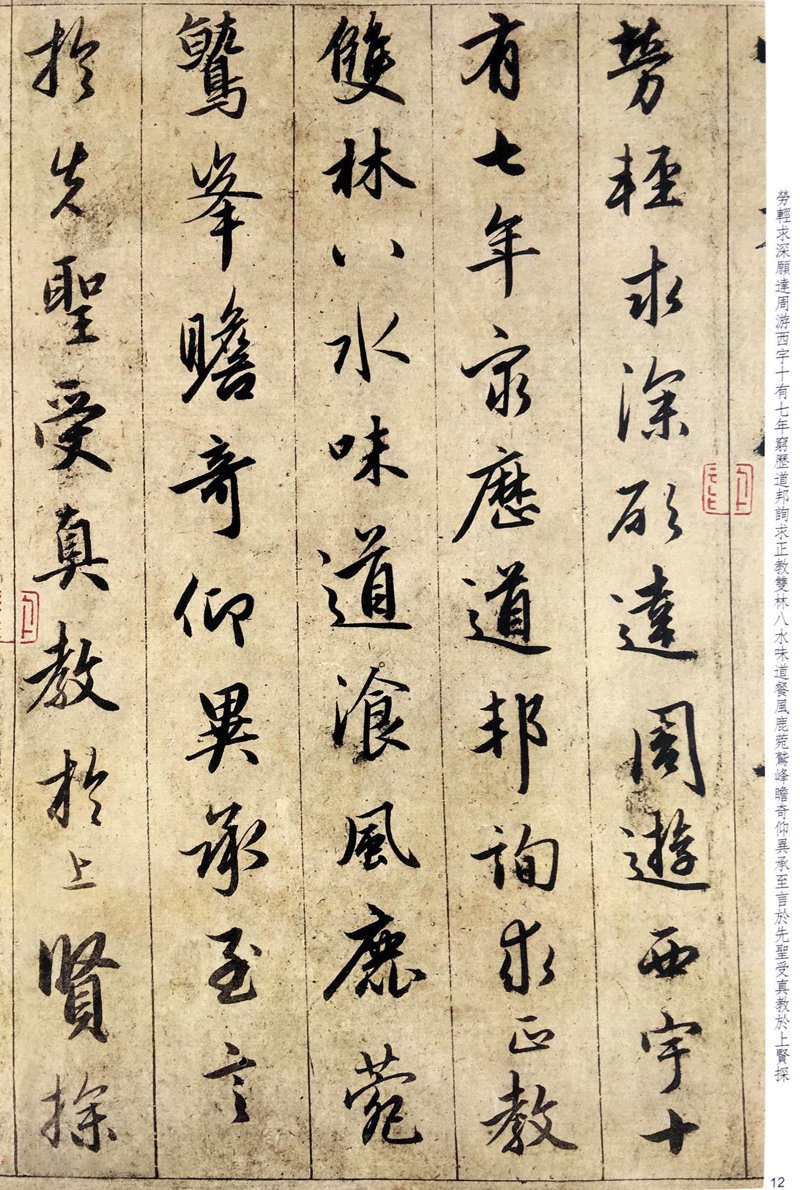 勞輕求深願達周遊西宇十
有七年窮歷道邦詢求正教
雙林八水味道飡風鹿菀
鷲峯瞻奇仰異承至言
於先聖受真教於上賢探
勞輕求深願達周游西宇十有七年窮歷道邦詢求正教雙林八水味道餐風鹿菀鷲峰瞻奇仰異承至言於先聖受真教於上賢探
12